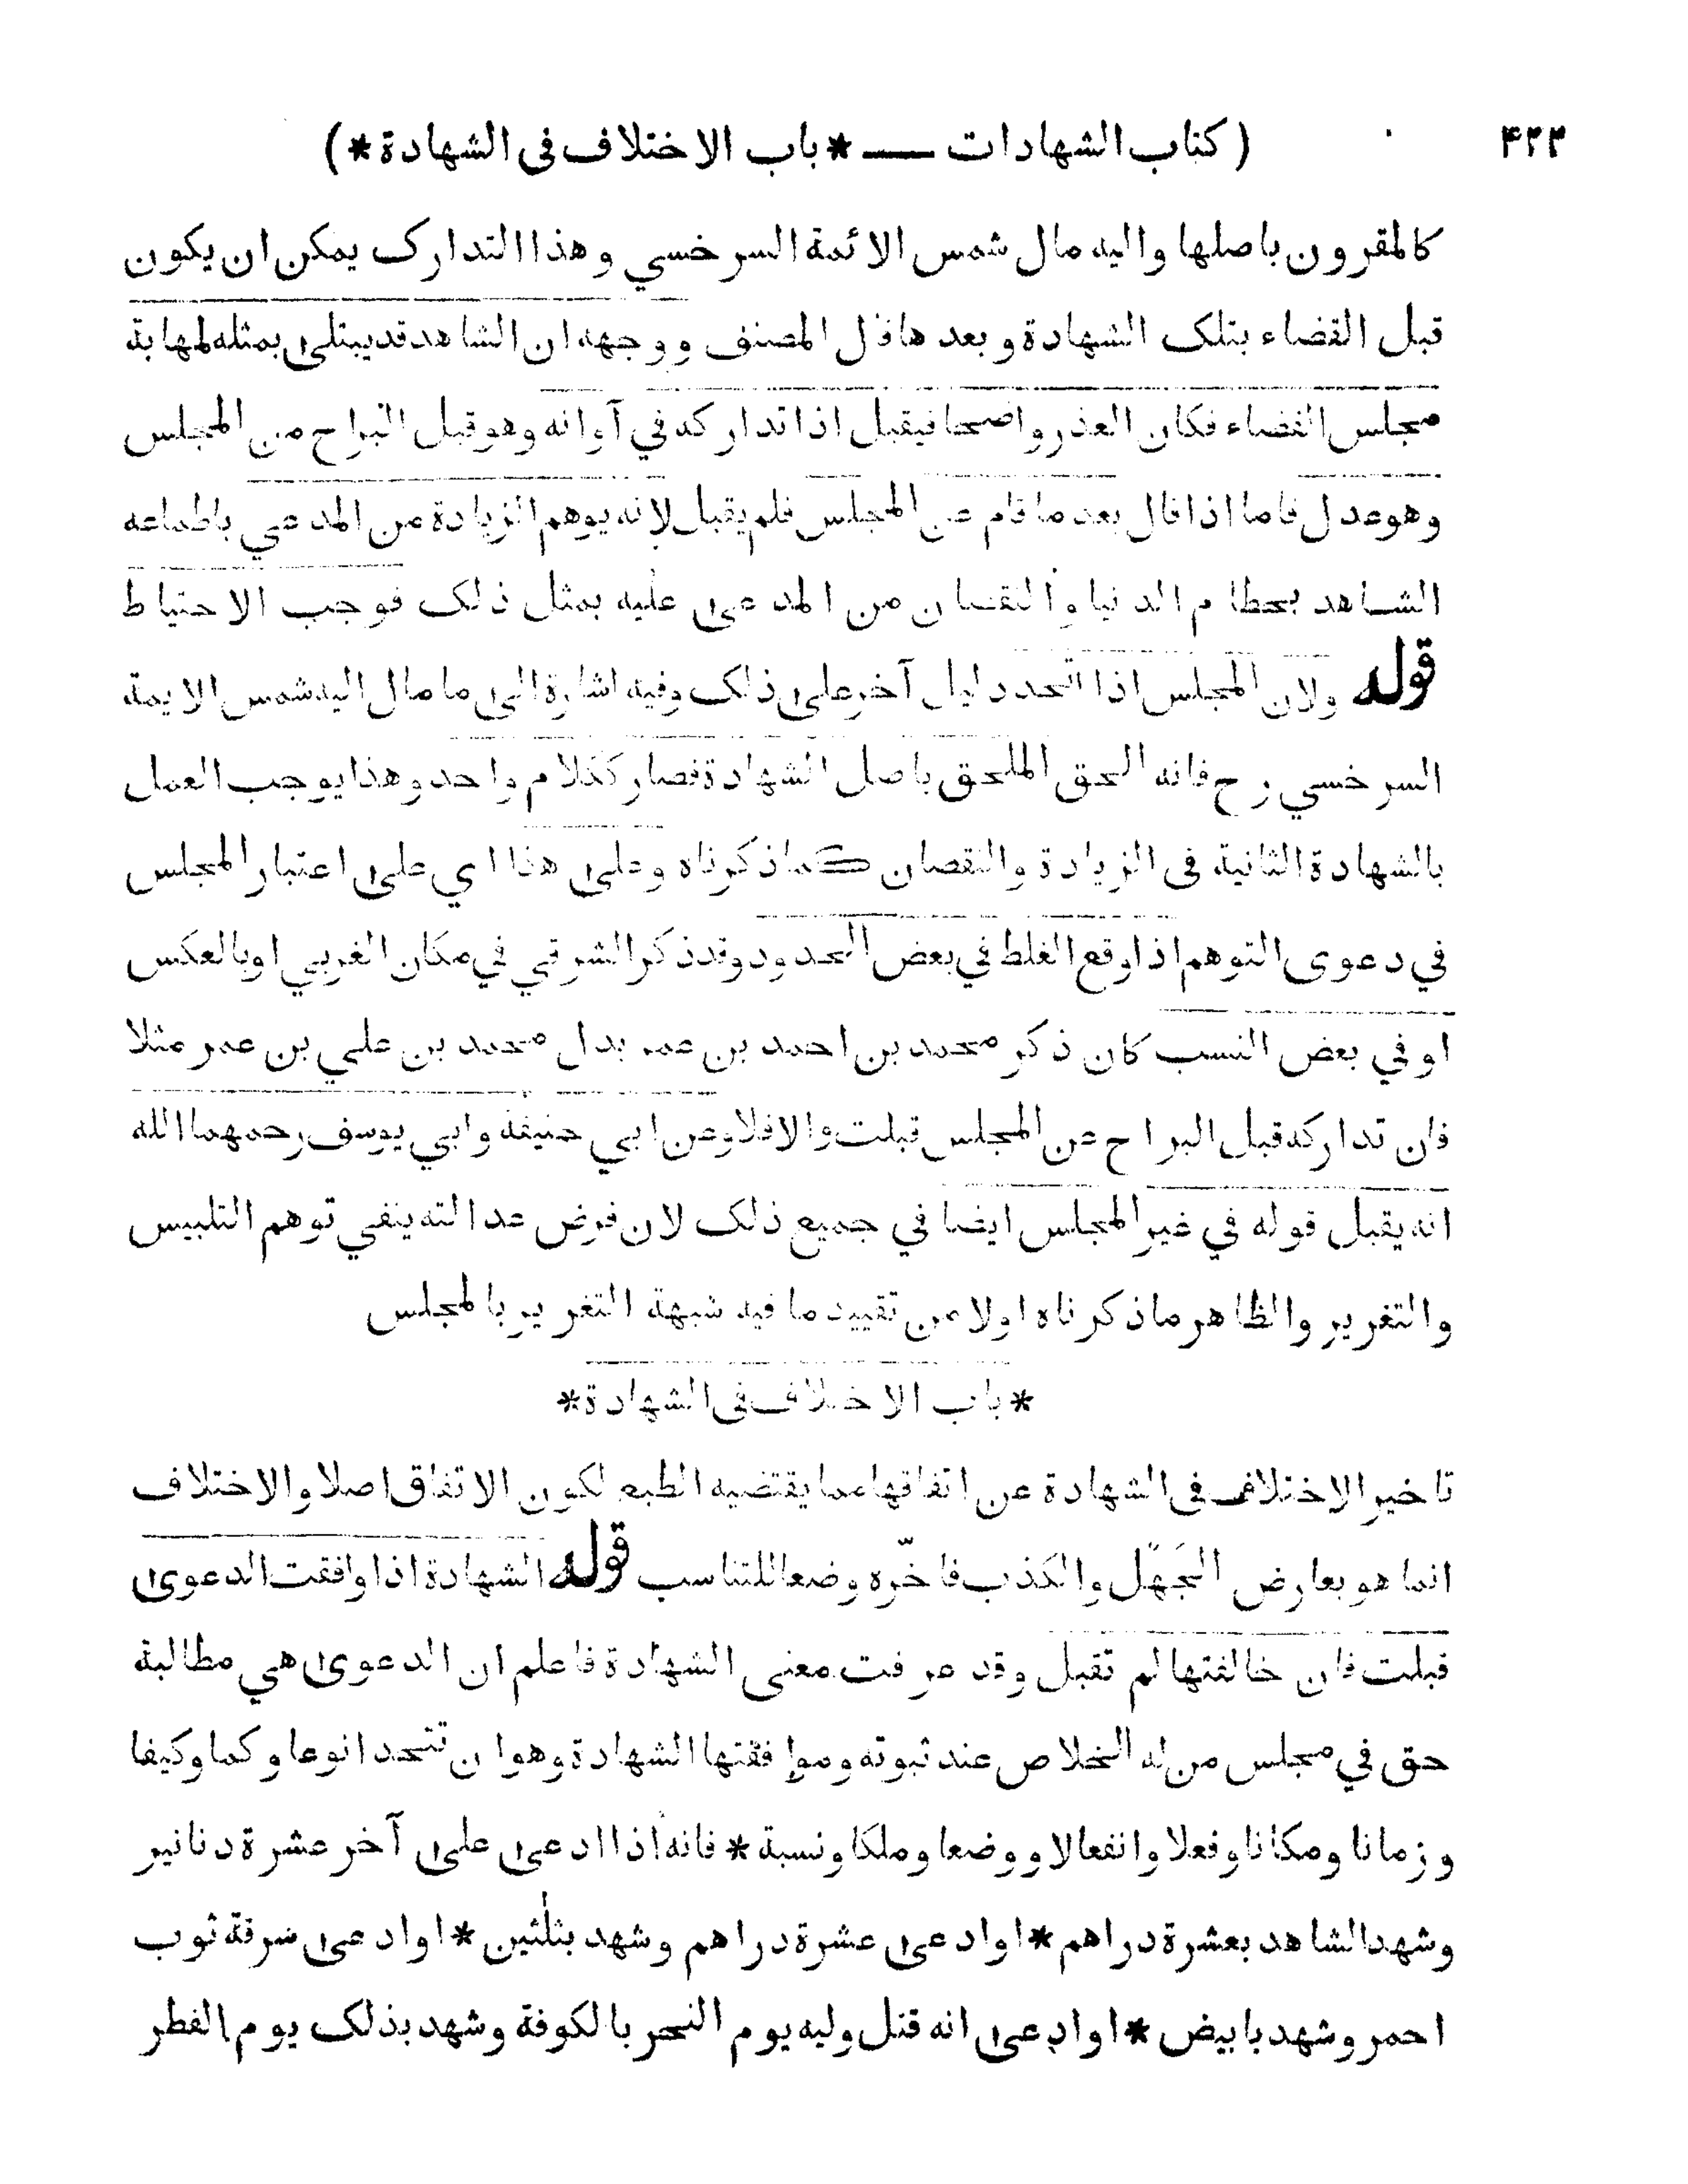 ۴۲۲ (كتاب الشهادات — *باب الاختلاف فى الشهادة*)
كالمقرون باصلها واليه مال شمس الائمة السرخسي وهذا التدارك يمكن ان يكون
قبل القضاء بتلك الشهادة وبعدها قال المصنف ووجهه ان الشاهد قد يبتلى بمثله لمهابة
مجلس القضاء فكان العذر واضحا فيقبل اذا تداركه في آوانه وهو قبل البراح من المجلس
وهو عدل فاما اذا قال بعد ما قام عن المجلس فلم يقبل لانه يوهم الزيادة من المدعي باطماعه
الشاهد بحطام الدنيا والنقصان من المدعى عليه بمثل ذلك فوجب الاحتياط
قوله ولان المجلس اذا اتحد دليل آخر على ذلك وفيه اشارة الى ما مال اليه شمس الايمة
السرخسي رح فانه الحق الملحق باصل الشهادة فصار ككلام واحد وهذا يوجب العمل
بالشهادة الثانية فى الزيادة والنقصان كما ذكرناه وعلى هذا اي على اعتبار المجلس
في دعوى التوهم اذا وقع الغلط في بعض الحدود وقد ذكر الشرقي في مكان الغربي او بالعكس
او في بعض النسب كان ذكر محمد بن احمد بن عمر بدل محمد بن علي بن عمر مثلا
فان تداركه قبل البراح عن المجلس قبلت والا فلا وعن ابي حنيفة وابي يوسف رحمهما الله
انه يقبل قوله في غير المجلس ايضا في جميع ذلك لان فرض عدالته ينفي توهم التلبيس
والتغرير والظاهر ما ذكرناه اولا من تقييد ما فيه شبهة التغرير بالمجلس
*باب الاختلاف فى الشهادة*
تاخير الاختلاف فى الشهادة عن اتفاقها مما يقتضيه الطبع لكون الاتفاق اصلا والاختلاف
انما هو بعارض الجهل والكذب فاخّره وضعا للتناسب قوله الشهادة اذا وافقت الدعوى
قبلت فان خالفتها لم تقبل وقد عرفت معنى الشهادة فاعلم ان الدعوى هي مطالبة
حق في مجلس من له الخلاص عند ثبوته وموافقتها الشهادة وهو ان تتحدا نوعا وكما وكيفا
وزمانا ومكانا وفعلا وانفعالا ووضعا وملكا ونسبة * فانه اذا ادعى على آخر عشرة دنانير
وشهد الشاهد بعشرة دراهم * او ادعى عشرة دراهم وشهد بثلثين * او ادعى سرقة ثوب
احمر وشهد بابيض * او ادعى انه قتل وليه يوم النحر بالكوفة وشهد بذلك يوم الفطر